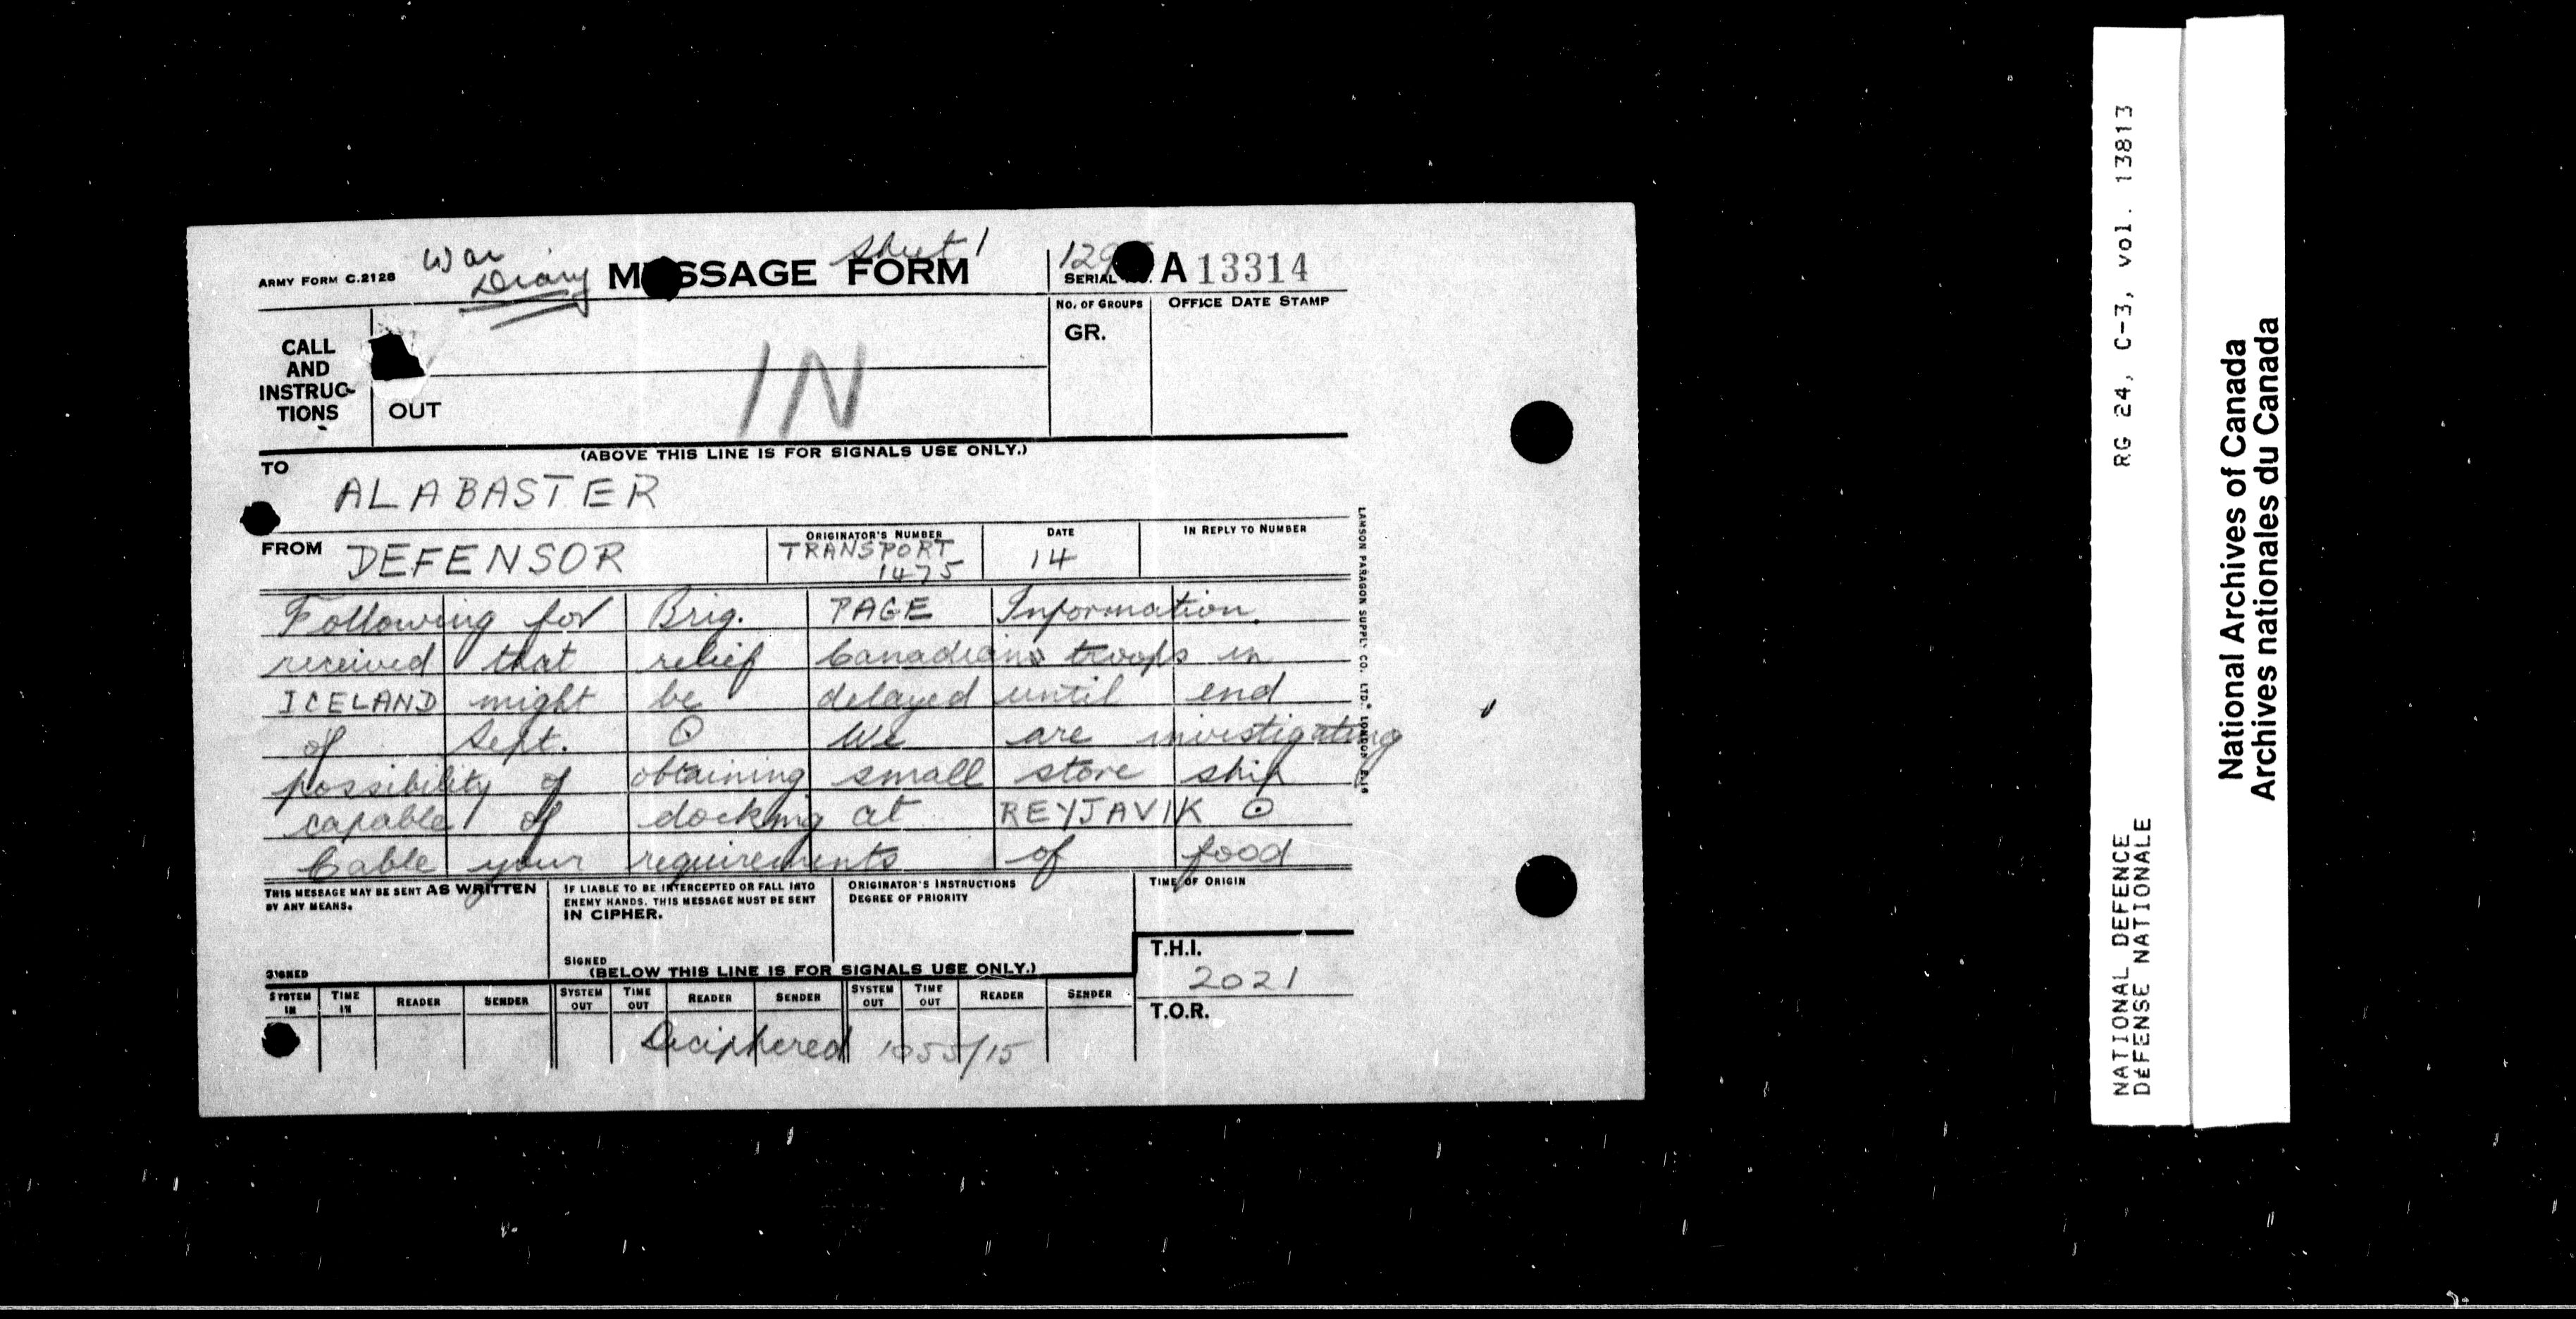 War
Diary
Sheet 1
ARMY FORM C.2128
MESSAGE FORM
SERIAL NO. A 13314
CALL AND INSTRUCTIONS
OUT
IN
NO. OF GROUPS
GR.
OFFICE DATE STAMP
(ABOVE THIS LINE IS FOR SIGNALS USE ONLY.)
TO
ALABASTER
FROM DEFENSOR
ORIGINATOR'S NUMBER
TRANSPORT
1475
DATE
14
IN REPLY TO NUMBER
Following for Brig. PAGE Information
received that relief Canadian troops in
ICELAND might be delayed until end
of Sept. ⊙ We are investigating
possibility of obtaining small store ship
capable of docking at REYJAVIK ⊙
Cable your requirements of food
LAMSON PARAGON SUPPLY CO. LTD. LONDON
THIS MESSAGE MAY BE SENT AS WRITTEN
BY ANY MEANS.
SIGNED
IF LIABLE TO BE INTERCEPTED OR FALL INTO
ENEMY HANDS, THIS MESSAGE MUST BE SENT
IN CIPHER.
SIGNED
ORIGINATOR'S INSTRUCTIONS
DEGREE OF PRIORITY
TIME OF ORIGIN
(BELOW THIS LINE IS FOR SIGNALS USE ONLY.)
T.H.I.
2021
T.O.R.
SYSTEM IN TIME IN READER SENDER SYSTEM OUT TIME OUT READER SENDER SYSTEM OUT TIME OUT READER SENDER
Deciphered 1055/15
NATIONAL DEFENCE RG 24, C-3, vol. 13813
DÉFENSE NATIONALE
National Archives of Canada
Archives nationales du Canada